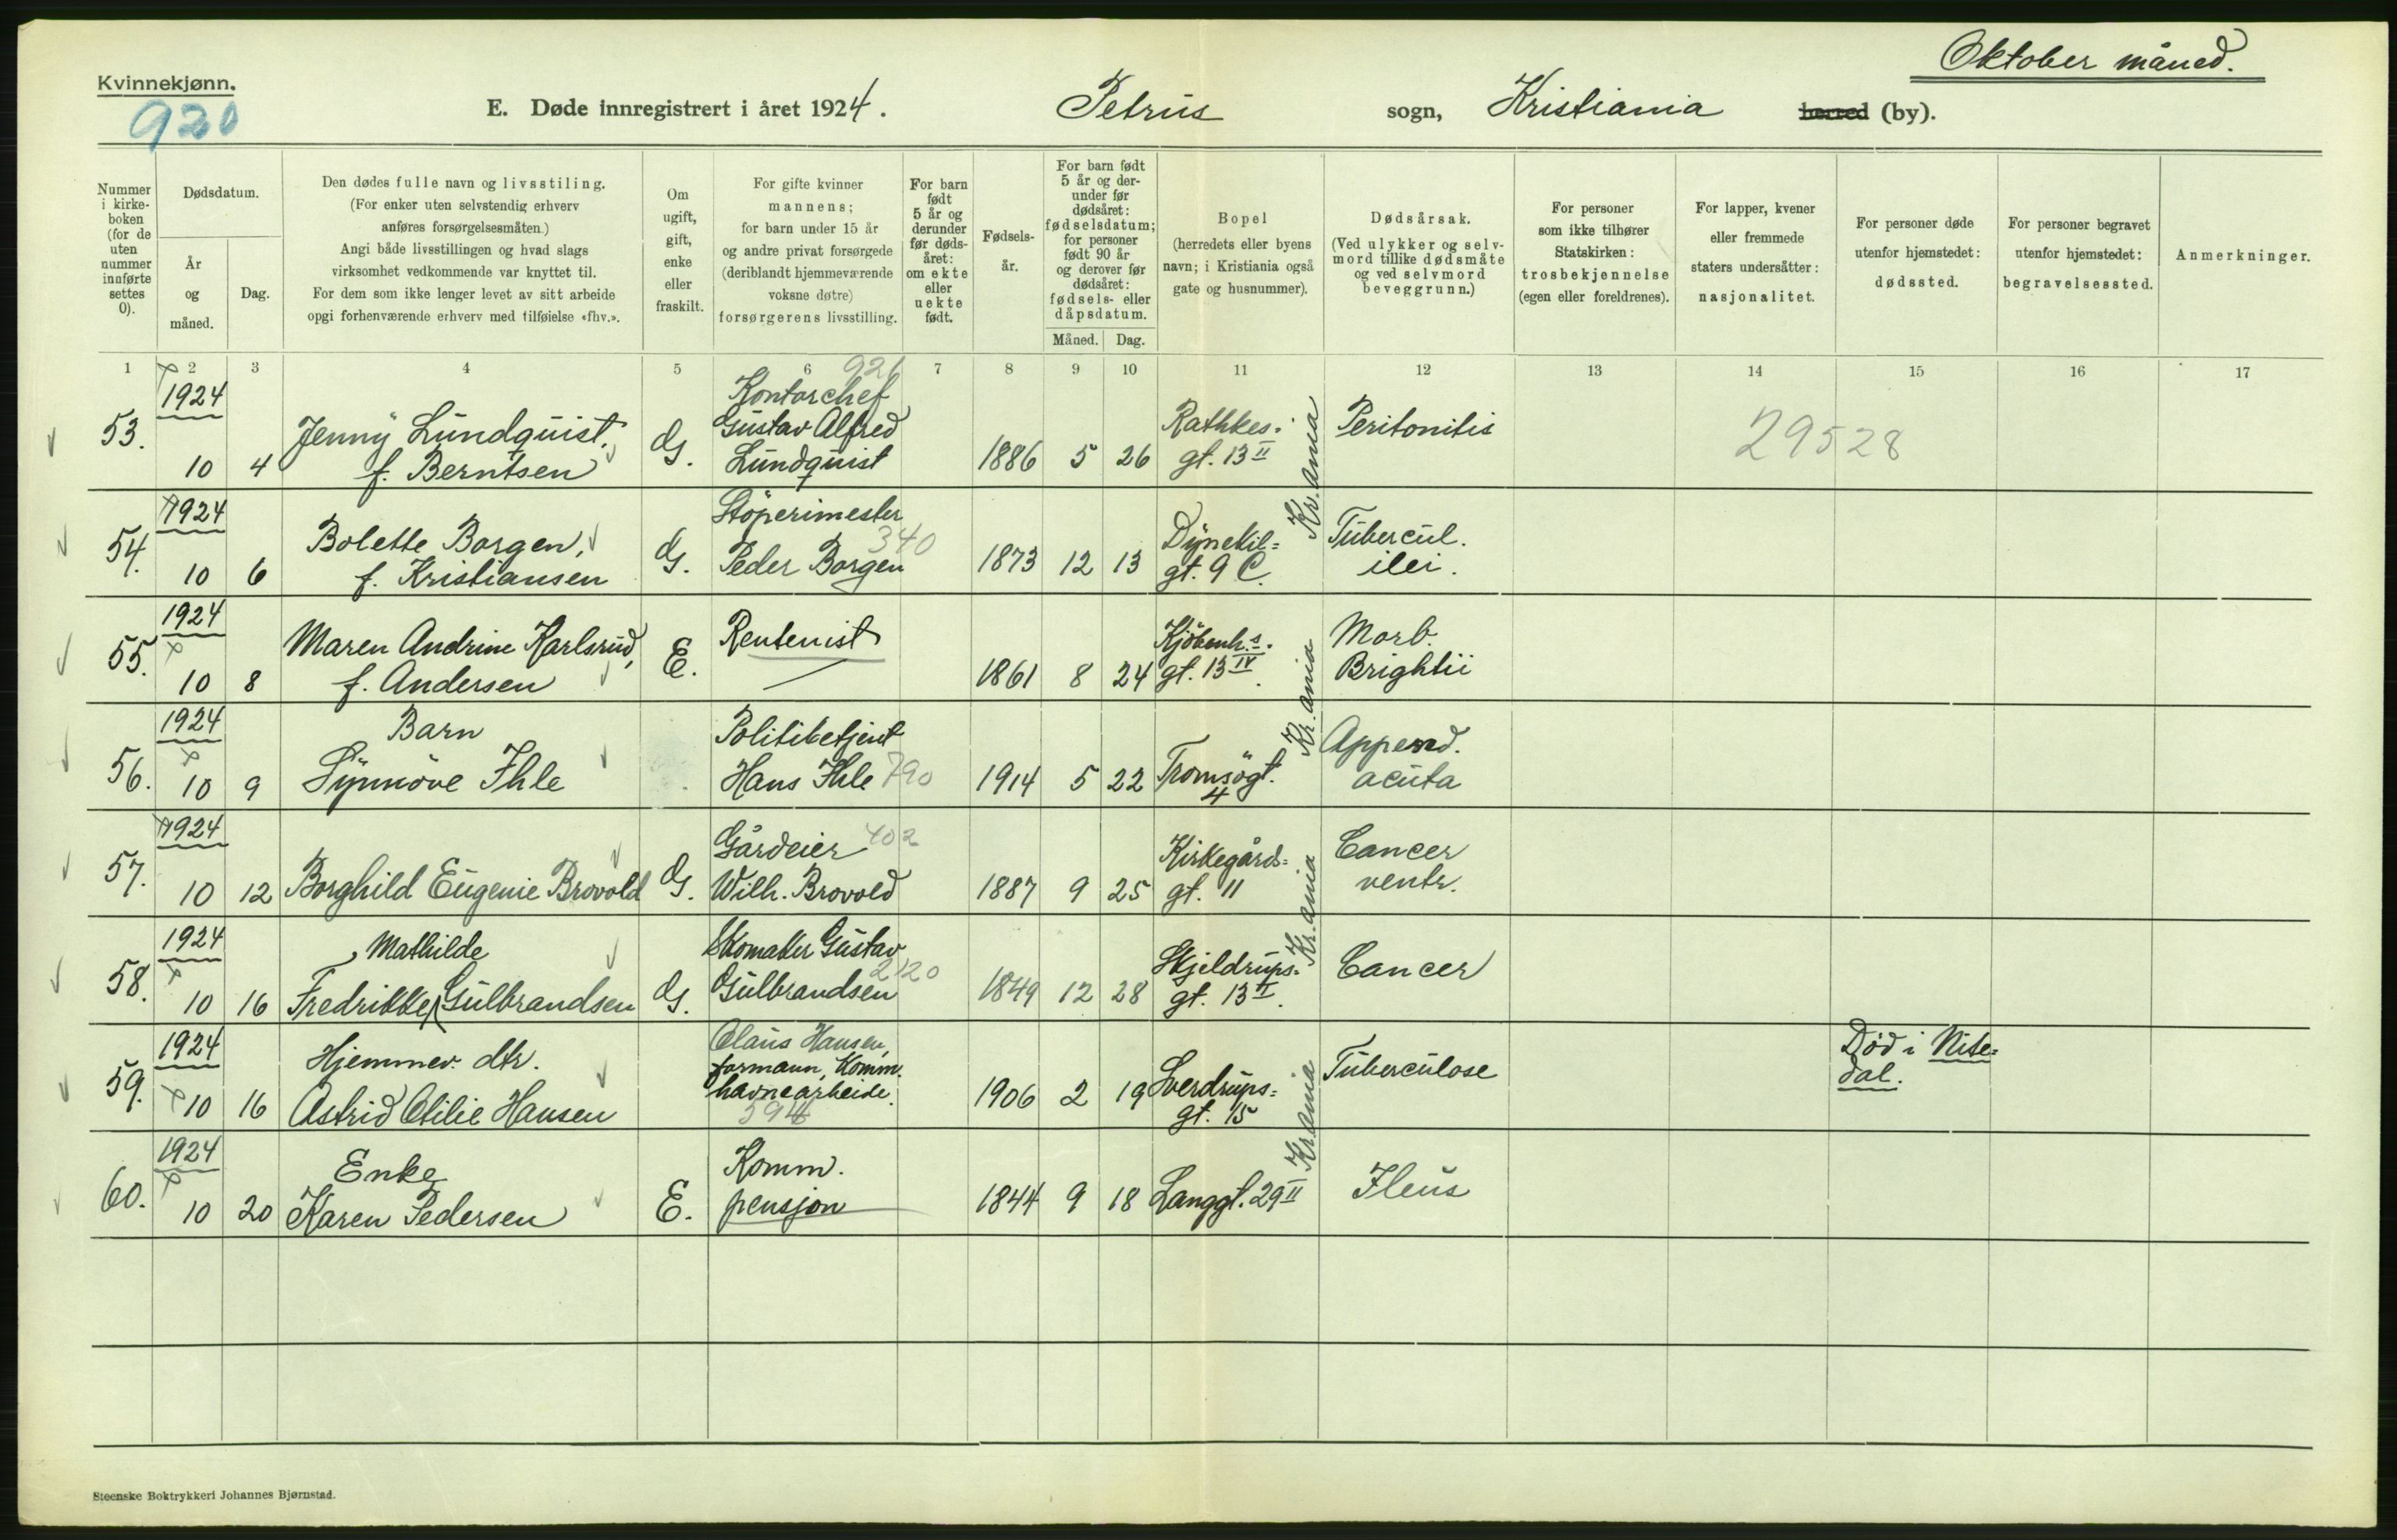 Oktober måned.
Kvinnekjønn.
920
E. Døde innregistrert i året 1924.
Petrus sogn, Kristiania herred (by).
Nummer i kirke-boken (for de uten nummer innførte settes 0).
Dødsdatum.
År og måned.
Dag.
Den dødes fulle navn og livsstiling.
(For enker uten selvstendig erhverv
anføres forsørgelsesmåten.)
Angi både livsstillingen og hvad slags
virksomhet vedkommende var knyttet til.
For dem som ikke lenger levet av sitt arbeide
opgi forhenværende erhverv med tilføielse «fhv.».
Om ugift, gift, enke eller fraskilt.
For gifte kvinner
mannens;
for barn under 15 år
og andre privat forsørgede
(deriblandt hjemmeværende
voksne døtre)
forsørgerens livsstilling.
For barn født 5 år og derunder før døds-året: om ekte eller uekte født.
Fødsels-år.
For barn født 5 år og der-under før dødsåret: fødselsdatum; for personer født 90 år og derover før dødsåret: fødsels- eller dåpsdatum.
Måned. Dag.
Bopel
(herredets eller byens
navn; i Kristiania også
gate og husnummer).
Dødsårsak.
(Ved ulykker og selv-
mord tillike dødsmåte
og ved selvmord
beveggrunn.)
For personer
som ikke tilhører
Statskirken:
trosbekjennelse
(egen eller foreldrenes).
For lapper, kvener
eller fremmede
staters undersåtter:
nasjonalitet.
For personer døde
utenfor hjemstedet:
dødssted.
For personer begravet
utenfor hjemstedet:
begravelsessted.
Anmerkninger.
1 2 3 4 5 6 7 8 9 10 11 12 13 14 15 16 17
53. 1924 10 4
Jenny Lundquist,
f. Berntsen
G.
921
Kontorchef
Gustav Alfred
Lundquist
1886 5 26
Rathkes-
gt. 13 II
Kr.ania
Peritonitis
29528
54. 1924 10 6
Bolette Borgen,
f. Kristiansen
G.
Støperimester
340
Peder Borgen
1873 12 13
Dynekil=
gt. 9 C.
Tubercul.
ilei.
55. 1924 10 8
Maren Andrine Karlsrud,
f. Andersen
E.
Rentenist
1861 8 24
Kjøbenh.s-
gt. 13 IV.
Kr.ania
Morb.
Brightii
56. 1924 10 9
Barn
Synnøve Ihle
Politibetjent
Hans Ihle 790
1914 5 22
Tromsøgt.
4
Append.
acuta
57. 1924 10 12
Borghild Eugenie Brovold
G.
Gårdeier 402
Wilh. Brovold
1887 9 25
Kirkegårds=
gt. 11
Kr.ania
Cancer
ventr.
58. 1924 10 16
Mathilde
Fredrikke Gulbrandsen
G.
Skomaker Gustav
2120
Gulbrandsen
1849 12 28
Skjeldrups-
gt. 13 I.
Cancer
59. 1924 10 16
Hjemmev. dtr.
Astrid Otilie Hansen
Claus Hansen,
formann, Komm.
havnearbeide.
594
1906 2 19
Sverdrups=
gt. 15
Kr.ania
Tuberculose
Død i Nite=
dal.
60. 1924 10 20
Enke
Karen Pedersen
E.
Komm.
pensjon
1844 9 18
Langgt. 29 II
Ileus
Steenske Boktrykkeri Johannes Bjørnstad.